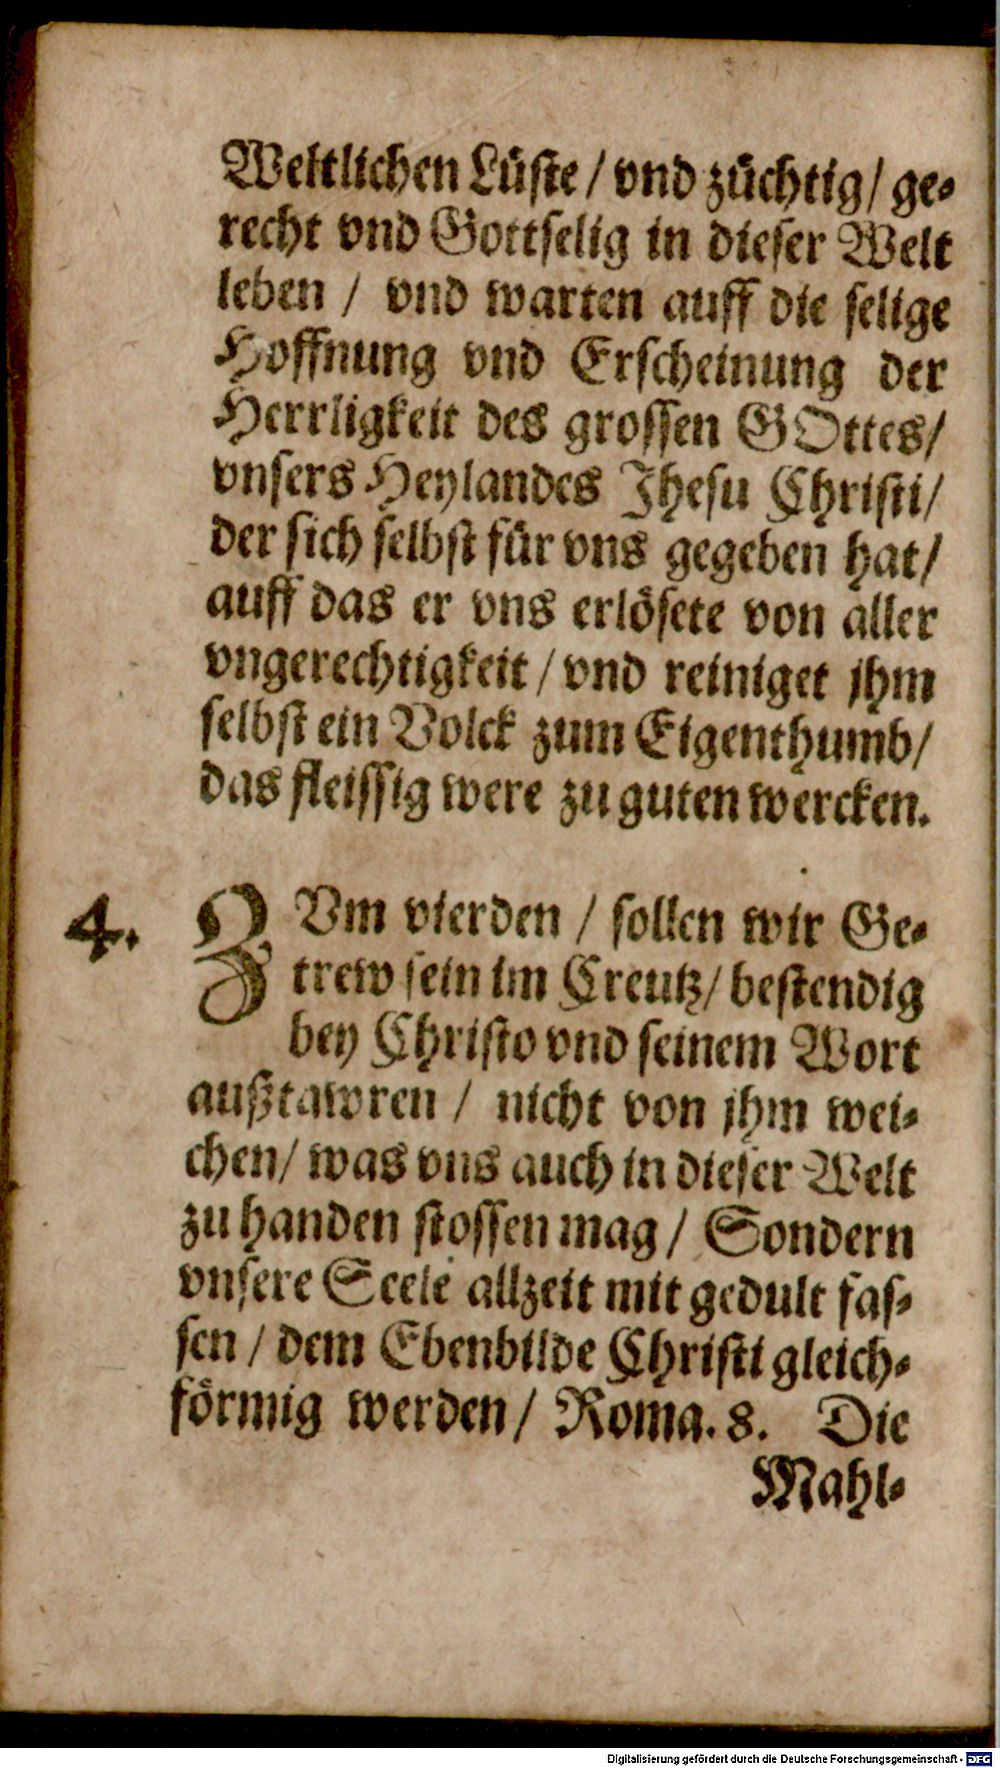 Weltlichen Lüste / vnd züchtig / ge-
recht vnd Gottselig in dieser Welt
leben / vnd warten auff die selige
Hoffnung vnd Erscheinung der
Herrligkeit des grossen GOttes /
vnsers Heylandes Jhesu Christi /
der sich selbst für vns gegeben hat /
auff das er vns erlösete von aller
vngerechtigkeit / vnd reiniget jhm
selbst ein Volck zum Eigenthumb /
das fleissig were zu guten wercken.
4. ZVm vierden / sollen wir Ge-
trew sein im Creutz / bestendig
bey Christo vnd seinem Wort
außtawren / nicht von jhm wei-
chen / was vns auch in dieser Welt
zu handen stossen mag / Sondern
vnsere Seele allzeit mit gedult fas-
sen / dem Ebenbilde Christi gleich-
förmig werden / Roma. 8. Die
Mahl-
Digitalisierung gefördert durch die Deutsche Forschungsgemeinschaft - DFG